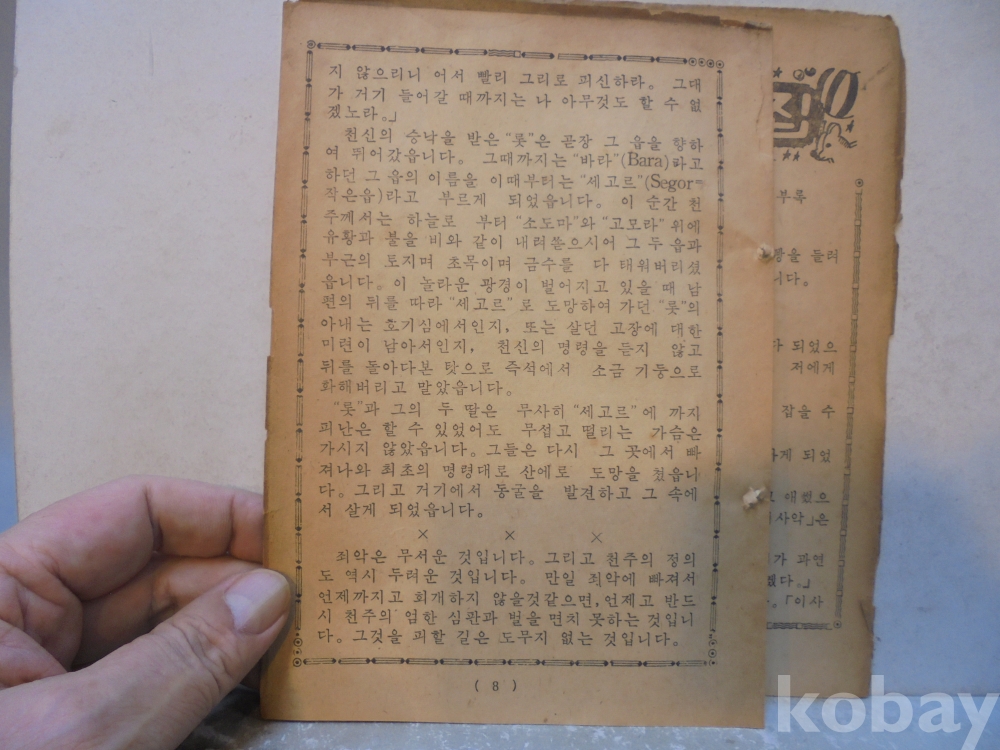 지 않으리니 어서 빨리 그리로 피신하라. 그대
가 거기 들어갈 때까지는 나 아무것도 할 수 없
겠노라.」
천신의 승낙을 받은 "롯"은 곧장 그 읍을 향하
여 뛰어갔읍니다. 그때까지는 "바라"(Bara)라고
하던 그 읍의 이름을 이때부터는 "세고르"(Segor=
작은읍)라고 부르게 되었읍니다. 이 순간 천
주께서는 하늘로 부터 "소도마"와 "고모라" 위에
유황과 불을 비와 같이 내려쏟으시어 그 두 읍과
부근의 토지며 초목이며 금수를 다 태워버리셨
읍니다. 이 놀라운 광경이 벌어지고 있을 때 남
편의 뒤를 따라 "세고르" 로 도망하여 가던 "롯"의
아내는 호기심에서인지, 또는 살던 고장에 대한
미련이 남아서인지, 천신의 명령을 듣지 않고
뒤를 돌아다본 탓으로 즉석에서 소금 기둥으로
화해버리고 말았읍니다.
"롯"과 그의 두 딸은 무사히 "세고르" 에 까지
피난은 할 수 있었어도 무섭고 떨리는 가슴은
가시지 않았읍니다. 그들은 다시 그 곳에서 빠
져나와 최초의 명령대로 산에로 도망을 쳤읍니
다. 그리고 거기에서 동굴을 발견하고 그 속에
서 살게 되었읍니다.
× × ×
죄악은 무서운 것입니다. 그리고 천주의 정의
도 역시 두려운 것입니다. 만일 죄악에 빠져서
언제까지고 회개하지 않을것같으면, 언제고 반드
시 천주의 엄한 심판과 벌을 면치 못하는 것입니
다. 그것을 피할 길은 도무지 없는 것입니다.
( 8 )
부록
을 들려
니다.
되었으
저에게
잡을 수
하게 되었
애했으
이사악」은
가 과연
겠다.」
. 「이사
kobay